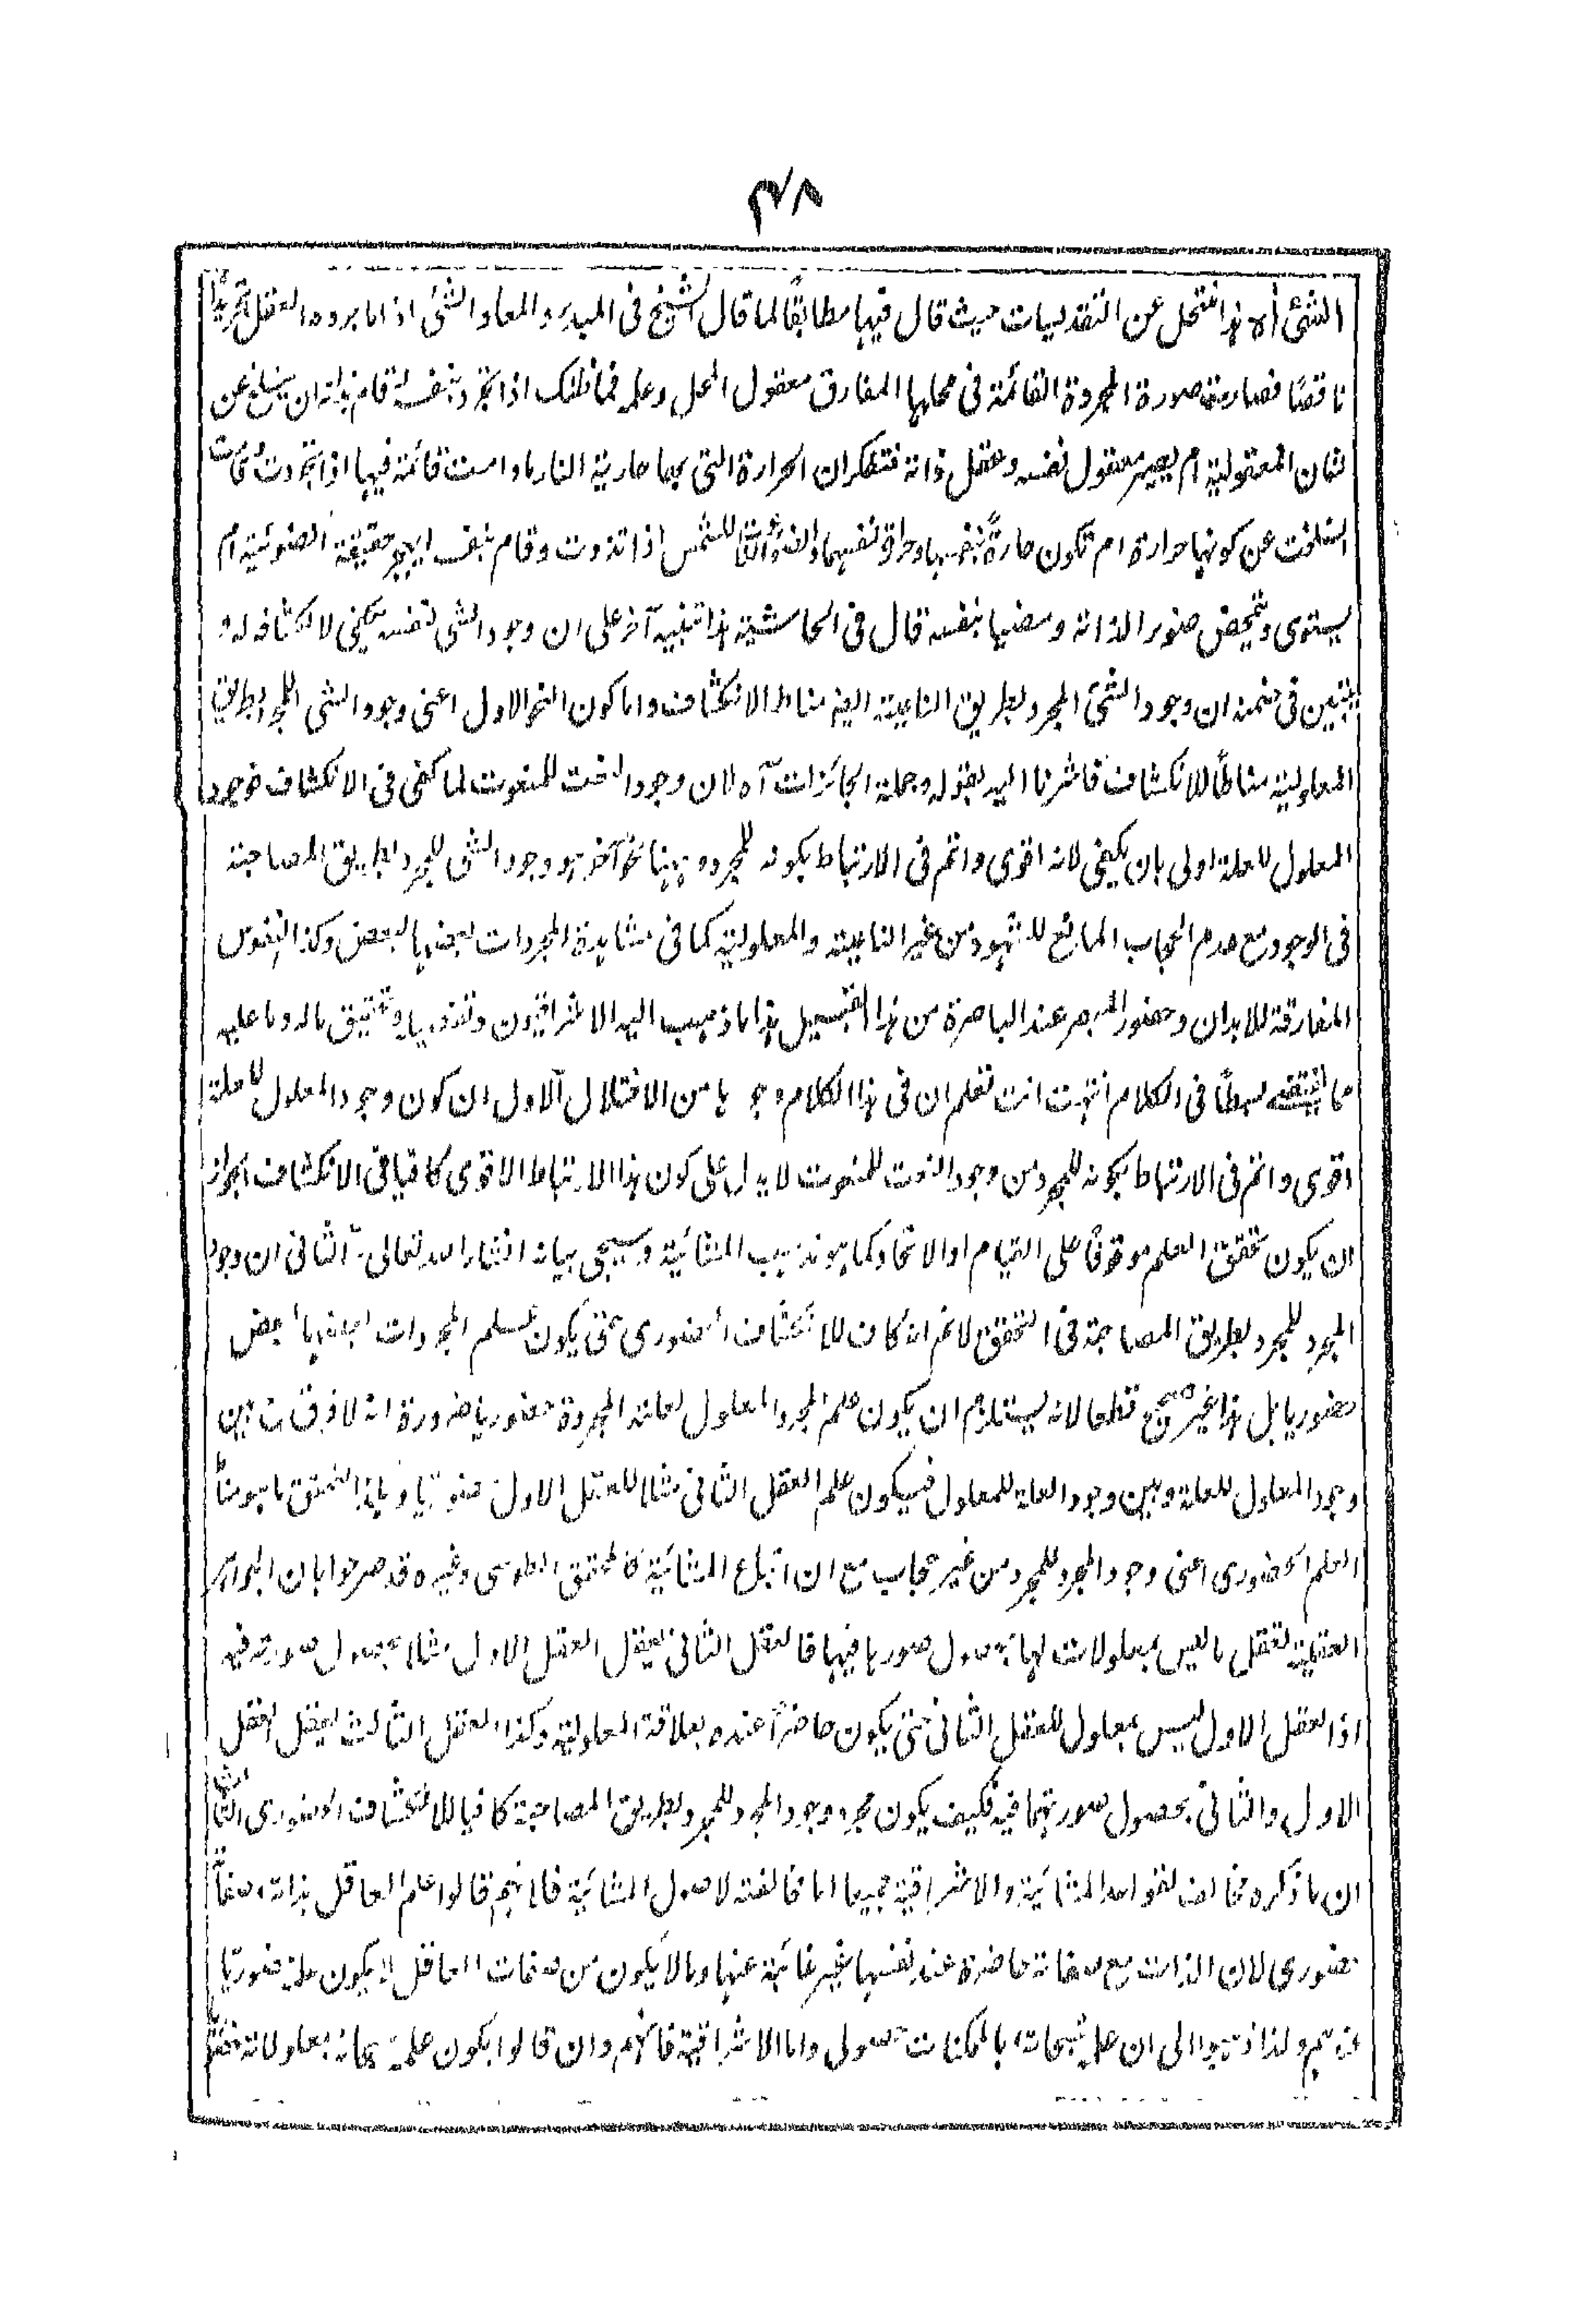 ٣٨
الشئ الا هذا منتحل عن التقديسات حيث قال فيها مطابقا لما قال الشيخ فى المبدء والمعاد الشئ اذا ما جرده العقل تجريدًا
ناقصًا فصارت صورة المجردة القائمة فى محلها المفارق معقول المحل وعلمه فما ظنك اذا تجرد بنفسه قام بذاته ان ينسلخ عن
شان المعقولية ام يصير معقول نفسه وعقل ذاته فتفكر ان الحرارة التى بها حارية النار ما دامت قائمة فيها اذا تجردت وقامت
انسلخت عن كونها حرارة ام تكون حارة بنفسها وحرارة لنفسها والضوء الثابت للشمس اذا تذوت وقام بنفسه حقيقة الضوئية ام
يستوى ويتمحض ضوءا لذاته ومضيا بنفسه قال فى الحاشية هذا تنبيه آخر على ان وجود الشى لنفسه يكفى لانكشافه له و
يتبين فى ضمنه ان وجود الشئ المجرد بطريق الناعتية ايضا مناط الانكشاف واما كون النحو الاول اعنى وجود الشى للمجرد بطريق
المعلولية مناطًا للانكشاف فاشرنا اليه بقوله وجملة الجائزات آه لان وجود النعت للمنعوت لما كفى فى الانكشاف فوجود
المعلول للعلة اولى بان يكفى لانه اقوى واتم فى الارتباط بكونه للمجرد وههنا نحو آخر هو وجود الشى للمجرد بطريق المصاحبة
فى الوجود مع عدم الحجاب المانع للشهود من غير الناعتية والمعلولية كما فى مشاهدة المجردات بعضها لبعض وكذا النفوس
المفارقة للابدان وحضور المبصر عند الباصرة من هذا القبيل هذا ما ذهب اليه الاشراقيون وتحقيق ماله وما عليه
مما يقتضى بسطًا فى الكلام انتهت انت تعلم ان فى هذا الكلام وجوها من الاختلال الاول ان كون وجود المعلول للعلة
اقوى واتم فى الارتباط بكونه للمجرد من وجود النعت للمنعوت لا يدل على كون هذا الارتباط الاقوى كافيا فى الانكشاف لجواز
ان يكون تحقق العلم موقوفًا على القيام او الاتحاد كما هو مذهب المشائية وسيجى بيانه انشاء الله تعالى الثانى ان وجود
المجرد للمجرد بطريق المصاحبة فى التحقق لا نم انه كاف للانكشاف الحضورى حتى يكون علم المجردات بعضها لبعض
حضوريا بل هذا غير صحيح قطعا لانه يستلزم ان يكون علم المجرد المعلول لعلته المجردة حضوريا ضرورة انه لا فرق بين
وجود المعلول للعلة وبين وجود العلة للمعلول فيكون علم العقل الثانى مثلا للعقل الاول حضوريا وبهذا التحقق ما هو مناط
العلم الحضورى اعنى وجود المجرد للمجرد من غير حجاب مع ان اتباع المشائية كالمحقق الطوسى وغيره قد صرحوا بان الجواهر
العقلية تعقل ما ليس بمعلولات لها بحصول صورها فيها فالعقل الثانى يعقل العقل الاول مثلا بحصول صورته فيه
اذ العقل الاول ليس بمعلول للعقل الثانى حتى يكون حاضرًا عنده بعلاقة المعلولية وكذا العقل الثالث يعقل العقل
الاول والثانى بحصول صورتهما فيه فكيف يكون مجرد وجود المجرد للمجرد بطريق المصاحبة كافيا للانكشاف الحضورى الثالث
ان ما ذكره مخالف لقواعد المشائية والاشراقية جميعا اما مخالفته لاصول المشائية فلانهم قالوا علم العاقل بذاته وصفاته
حضورى لان الذات مع صفاته حاضرة عند نفسها غير غائبة عنها وما لا يكون من صفات العاقل لا يكون علمه حضوريًا
عندهم ولذا ذهبوا الى ان علمه سبحانه بالممكنات حصولى واما الاشراقية فانهم وان قالوا بكون علمه سبحانه بمعلولاته